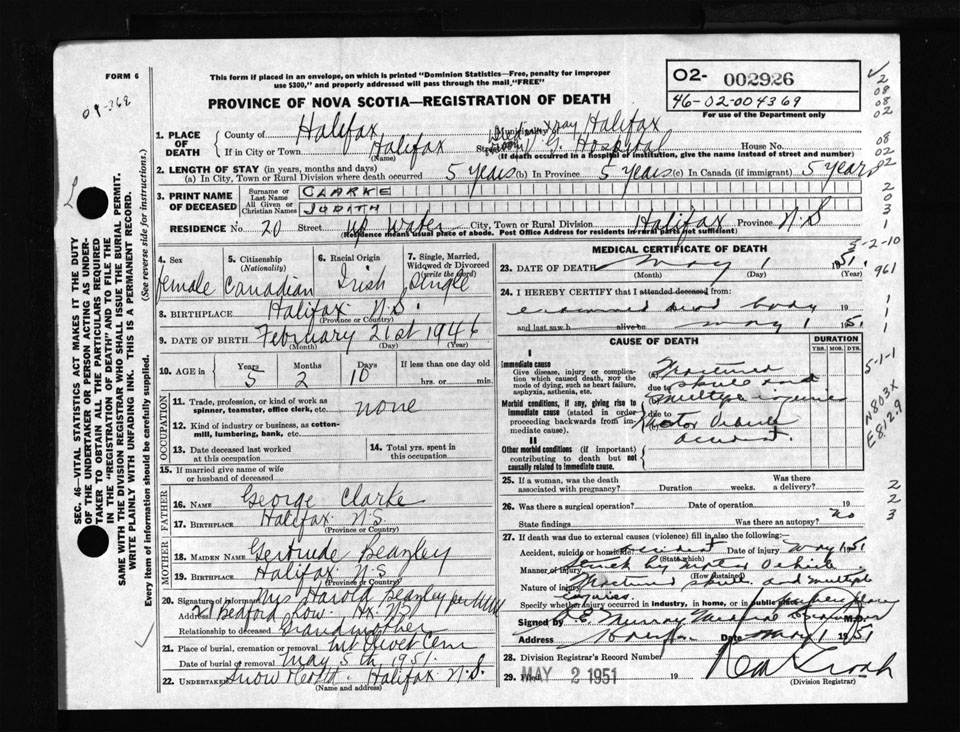 FORM 6
This form if placed in an envelope, on which is printed "Dominion Statistics—Free, penalty for improper
use $300," and properly addressed will pass through the mail "FREE"
PROVINCE OF NOVA SCOTIA—REGISTRATION OF DEATH
02- 002926
46-02-004369
For use of the Department only
1. PLACE OF DEATH
County of Halifax
Municipality of Halifax
If in City or Town Halifax
(Name)
Street V. G. Hospital House No.
(If death occurred in a hospital or institution, give the name instead of street and number)
2. LENGTH OF STAY (in years, months and days)
(a) In City, Town or Rural Division where death occurred 5 years (b) In Province 5 years (c) In Canada (if immigrant) 5 years
3. PRINT NAME OF DECEASED
Surname or Last Name CLARKE
All Given or Christian Names JUDITH
RESIDENCE No. 20 Street up Water City, Town or Rural Division Halifax Province N.S
(Residence means usual place of abode. Post Office Address for residents in rural parts not sufficient)
4. Sex female
5. Citizenship (Nationality) Canadian
6. Racial Origin Irish
7. Single, Married, Widowed or Divorced (write the word) Single
8. BIRTHPLACE Halifax N.S.
(Province or Country)
9. DATE OF BIRTH February 21st 1946
(Month) (Day) (Year)
10. AGE in Years 5 Months 2 Days 10 If less than one day old hrs. or min.
OCCUPATION
11. Trade, profession, or kind of work as spinner, teamster, office clerk, etc. none
12. Kind of industry or business, as cotton-mill, lumbering, bank, etc.
13. Date deceased last worked at this occupation
14. Total yrs. spent in this occupation
15. If married give name of wife or husband of deceased
FATHER
16. NAME George Clarke
17. BIRTHPLACE Halifax N.S.
(Province or Country)
MOTHER
18. MAIDEN NAME Gertrude Beazley
19. BIRTHPLACE Halifax N.S
(Province or Country)
20. Signature of informant Mrs Harold Beazley per
Address Bedford Row. Hx. N.S
Relationship to deceased Grandmother
21. Place of burial, cremation or removal Mt Olivet Cem
Date of burial or removal May 5th 1951.
22. Undertaker Snow Halifax N.S.
(Name and address)
MEDICAL CERTIFICATE OF DEATH
23. DATE OF DEATH May 1 1951.
(Month) (Day) (Year)
24. I HEREBY CERTIFY that I attended deceased from:
examined dead body 19
and last saw h alive on May 1 1951
CAUSE OF DEATH
DURATION
YRS. MOS. DYS.
I
Immediate cause
Give disease, injury or complication which caused death, NOT the mode of dying, such as heart failure, asphyxia, asthenia, etc.
(a) Fractured
due to skull and
multiple injuries
Morbid conditions, if any, giving rise to immediate cause (stated in order proceeding backwards from immediate cause).
due to
Motor Vehicle
accident.
II
Other morbid conditions (if important) contributing to death but not causally related to immediate cause.
25. If a woman, was the death associated with pregnancy? Duration weeks. Was there a delivery?
26. Was there a surgical operation? Date of operation 19
State findings Was there an autopsy? No
27. If death was due to external causes (violence) fill in also the following:—
Accident, suicide or homicide? accident Date of injury May 1 1951
(State which)
Manner of injury Struck by motor vehicle
(How sustained)
Nature of injury Fractured skull and multiple
injuries.
Specify whether injury occurred in industry, in home, or in public place public place
Signed by Murray Medical Examiner M.D.
Address Halifax Date May 1 1951
28. Division Registrar's Record Number
29. Filed MAY 2 1951
(Division Registrar)
SEC. 46—VITAL STATISTICS ACT MAKES IT THE DUTY
OF THE UNDERTAKER OR PERSON ACTING AS UNDERTAKER TO OBTAIN ALL THE PARTICULARS REQUIRED
IN THE "REGISTRATION OF DEATH" AND TO FILE THE
SAME WITH THE DIVISION REGISTRAR WHO SHALL ISSUE THE BURIAL PERMIT.
WRITE PLAINLY WITH UNFADING INK. THIS IS A PERMANENT RECORD.
Every item of information should be carefully supplied. (See reverse side for instructions.)
3-2-10
961
5-1-1
N803X
E812.9